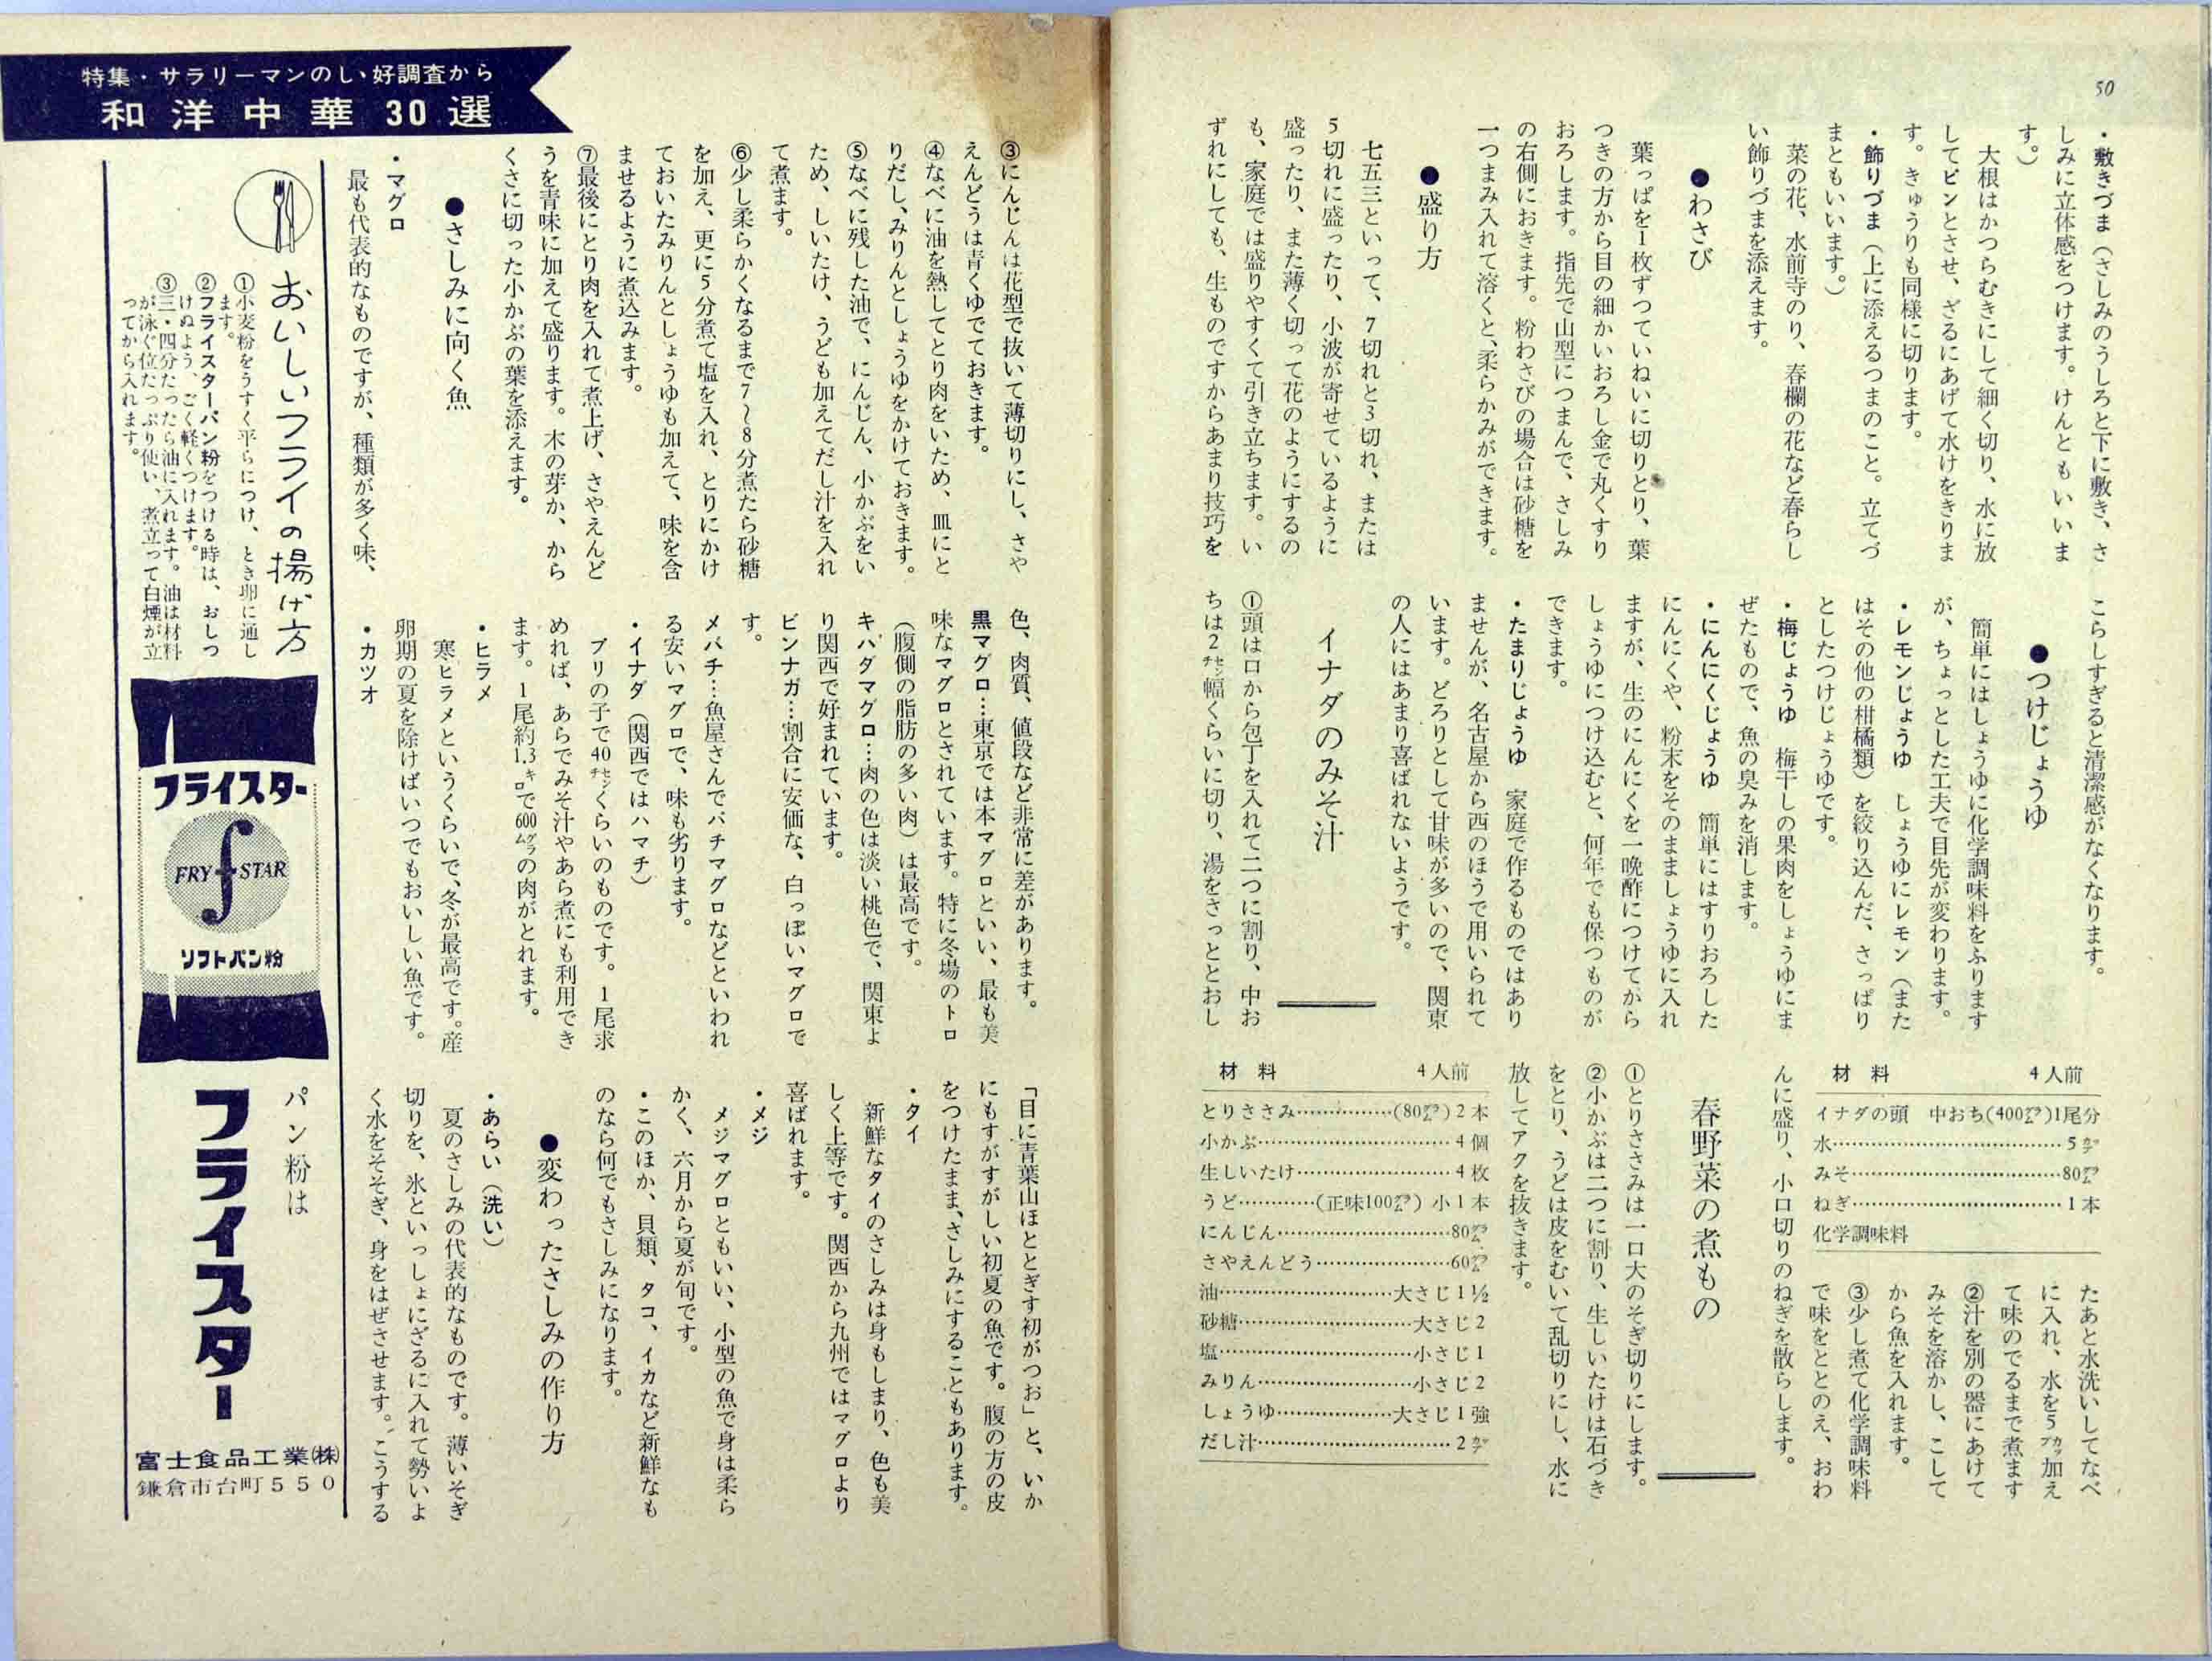 50
・敷きづま（さしみのうしろと下に敷き、さ
しみに立体感をつけます。けんともいいま
す。）
大根はかつらむきにして細く切り、水に放
してピンとさせ、ざるにあげて水けをきりま
す。きゅうりも同様に切ります。
・飾りづま（上に添えるつまのこと。立てづ
まともいいます。）
菜の花、水前寺のり、春欄の花など春らし
い飾りづまを添えます。
●わさび
葉っぱを1枚ずつていねいに切りとり、葉
つきの方から目の細かいおろし金で丸くすり
おろします。指先で山型につまんで、さしみ
の右側におきます。粉わさびの場合は砂糖を
一つまみ入れて溶くと、柔らかみができます。
●盛り方
七五三といって、7切れと3切れ、または
5切れに盛ったり、小波が寄せているように
盛ったり、また薄く切って花のようにするの
も、家庭では盛りやすくて引き立ちます。い
ずれにしても、生ものですからあまり技巧を
こらしすぎると清潔感がなくなります。
●つけじょうゆ
簡単にはしょうゆに化学調味料をふります
が、ちょっとした工夫で目先が変わります。
・レモンじょうゆ　しょうゆにレモン（また
はその他の柑橘類）を絞り込んだ、さっぱり
としたつけじょうゆです。
・梅じょうゆ　梅干しの果肉をしょうゆにま
ぜたもので、魚の臭みを消します。
・にんにくじょうゆ　簡単にはすりおろした
にんにくや、粉末をそのまましょうゆに入れ
ますが、生のにんにくを一晩酢につけてから
しょうゆにつけ込むと、何年でも保つものが
できます。
・たまりじょうゆ　家庭で作るものではあり
ませんが、名古屋から西のほうで用いられて
います。どろりとして甘味が多いので、関東
の人にはあまり喜ばれないようです。
イナダのみそ汁
①頭は口から包丁を入れて二つに割り、中お
ちは2センチ幅くらいに切り、湯をさっととおし
材料　4人前
イナダの頭　中おち(400グラム)1尾分
水……………………5カップ
みそ……………………80グラム
ねぎ……………………1本
化学調味料
たあと水洗いしてなべ
に入れ、水を5カップ加え
て味のでるまで煮ます
②汁を別の器にあけて
みそを溶かし、こして
から魚を入れます。
③少し煮て化学調味料
で味をととのえ、おわ
んに盛り、小口切りのねぎを散らします。
春野菜の煮もの
①とりささみは一口大のそぎ切りにします。
②小かぶは二つに割り、生しいたけは石づき
をとり、うどは皮をむいて乱切りにし、水に
放してアクを抜きます。
材料　4人前
とりささみ…………(80グラム)2本
小かぶ……………………4個
生しいたけ……………………4枚
うど…………(正味100グラム)小1本
にんじん……………………80グラム
さやえんどう……………………60グラム
油……………………大さじ1½
砂糖……………………大さじ2
塩……………………小さじ1
みりん……………………小さじ2
しょうゆ……………………大さじ1強
だし汁……………………2カップ
特集・サラリーマンのし、好調査から
和洋中華30選
③にんじんは花型で抜いて薄切りにし、さや
えんどうは青くゆでておきます。
④なべに油を熱してとり肉をいため、皿にと
りだし、みりんとしょうゆをかけておきます。
⑤なべに残した油で、にんじん、小かぶをい
ため、しいたけ、うども加えてだし汁を入れ
て煮ます。
⑥少し柔らかくなるまで7〜8分煮たら砂糖
を加え、更に5分煮て塩を入れ、とりにかけ
ておいたみりんとしょうゆも加えて、味を含
ませるように煮込みます。
⑦最後にとり肉を入れて煮上げ、さやえんど
うを青味に加えて盛ります。木の芽か、から
くさに切った小かぶの葉を添えます。
●さしみに向く魚
・マグロ
最も代表的なものですが、種類が多く味、
色、肉質、値段など非常に差があります。
黒マグロ…東京では本マグロといい、最も美
味なマグロとされています。特に冬場のトロ
（腹側の脂肪の多い肉）は最高です。
キハダマグロ…肉の色は淡い桃色で、関東よ
り関西で好まれています。
ビンナガ…割合に安価な、白っぽいマグロで
す。
メバチ…魚屋さんでバチマグロなどといわれ
る安いマグロで、味も劣ります。
・イナダ（関西ではハマチ）
ブリの子で40センチくらいのものです。1尾求
めれば、あらでみそ汁やあら煮にも利用でき
ます。1尾約1.3キロで600グラムの肉がとれます。
・ヒラメ
寒ヒラメというくらいで、冬が最高です。産
卵期の夏を除けばいつでもおいしい魚です。
・カツオ
「目に青葉山ほととぎす初がつお」と、いか
にもすがすがしい初夏の魚です。腹の方の皮
をつけたまま、さしみにすることもあります。
・タイ
新鮮なタイのさしみは身もしまり、色も美
しく上等です。関西から九州ではマグロより
喜ばれます。
・メジ
メジマグロともいい、小型の魚で身は柔ら
かく、六月から夏が旬です。
・このほか、貝類、タコ、イカなど新鮮なも
のなら何でもさしみになります。
●変わったさしみの作り方
・あらい（洗い）
夏のさしみの代表的なものです。薄いそぎ
切りを、氷といっしょにざるに入れて勢いよ
く水をそそぎ、身をはぜさせます。こうする
おいしいフライの揚げ方
①小麦粉をうすく平らにつけ、とき卵に通し
ます。
②フライスターパン粉をつける時は、おしつ
けぬよう、ごく軽くつけます。
③三・四分たったら油に入れます。油は材料
が泳ぐ位たっぷり使い、煮立って白煙が立
ってから入れます。
フライスター
FRY STAR
f
ソフトパン粉
パン粉は
フライスター
富士食品工業㈱
鎌倉市台町550